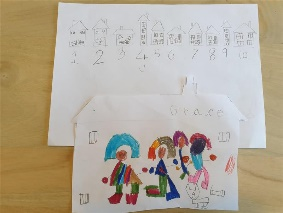 1 2 3 4 5 6 7 8 9 10
Grace